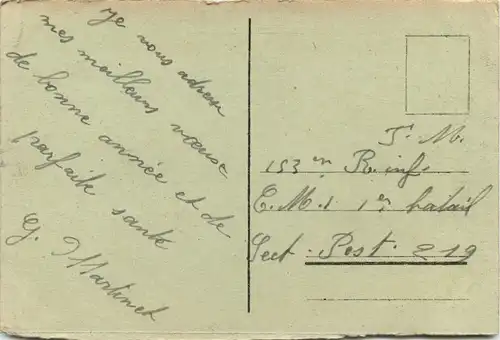 Je vous adresse
mes meilleurs vœux
de bonne année et de
parfaite santé
G. Martinet
F. M.
153 em R. inf.
E. M. 1 1er batail
Sect. Post. 219